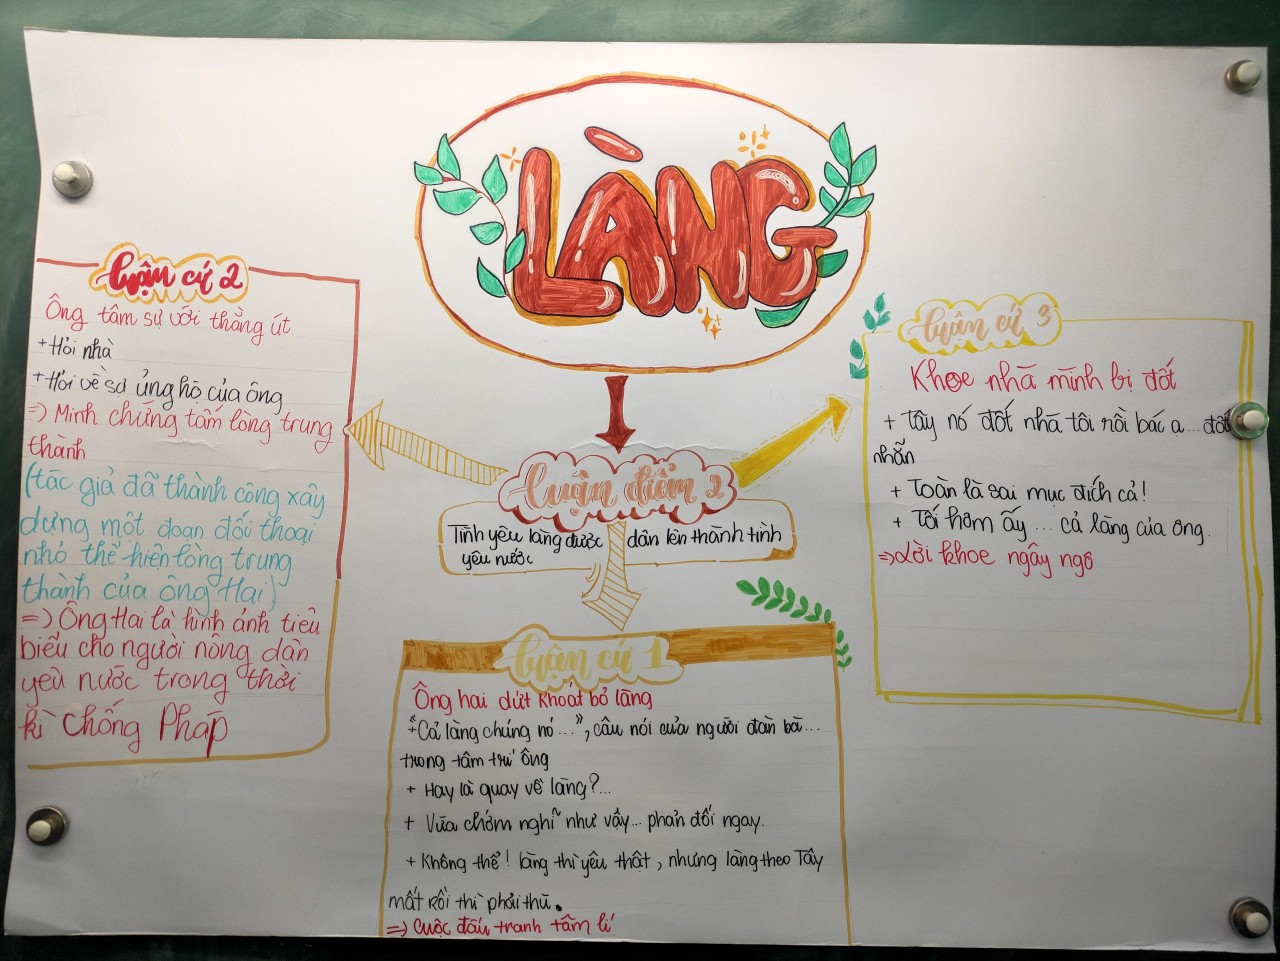 LÀNG
luận điểm 2
Tình yêu làng được dân lên thành tình
yêu nước
luận cứ 1
Ông hai dứt khoát bỏ làng
+ "Cả làng chúng nó...", câu nói của người đàn bà...
trong tâm trí ông
+ Hay là quay về làng?...
+ Vừa chớm nghĩ như vậy... phản đối ngay.
+ Không thể! làng thì yêu thật, nhưng làng theo Tây
mất rồi thì phải thù.
=> Cuộc đấu tranh tâm lí
luận cứ 2
Ông tâm sự với thằng út
+ Hỏi nhà
+ Hỏi về sự ủng hộ của ông
=> Minh chứng tấm lòng trung
thành
(tác giả đã thành công xây
dựng một đoạn đối thoại
nhỏ thể hiện lòng trung
thành của ông Hai)
=> Ông Hai là hình ảnh tiêu
biểu cho người nông dân
yêu nước trong thời
kì chống Pháp
luận cứ 3
Khoe nhà mình bị đốt
+ Tây nó đốt nhà tôi rồi bác ạ... đốt
nhẵn
+ Toàn là sai mục đích cả!
+ Tối hôm ấy... cả làng của ông.
=> Lời khoe ngây ngô